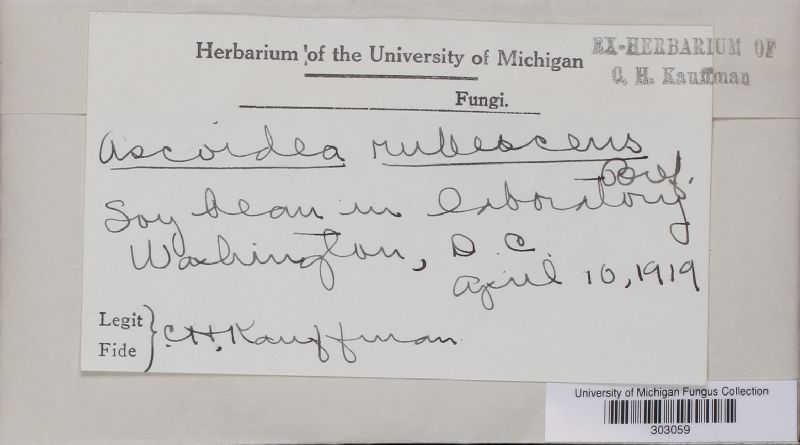 Herbarium of the University of Michigan
EX-HERBARIUM OF
C. H. Kauffman
Fungi.
Ascoidea rubescens
Bref.
Soy bean in laboratory
Washington, D.C.
April 10, 1919
Legit
Fide
C.H. Kauffman
University of Michigan Fungus Collection
303059